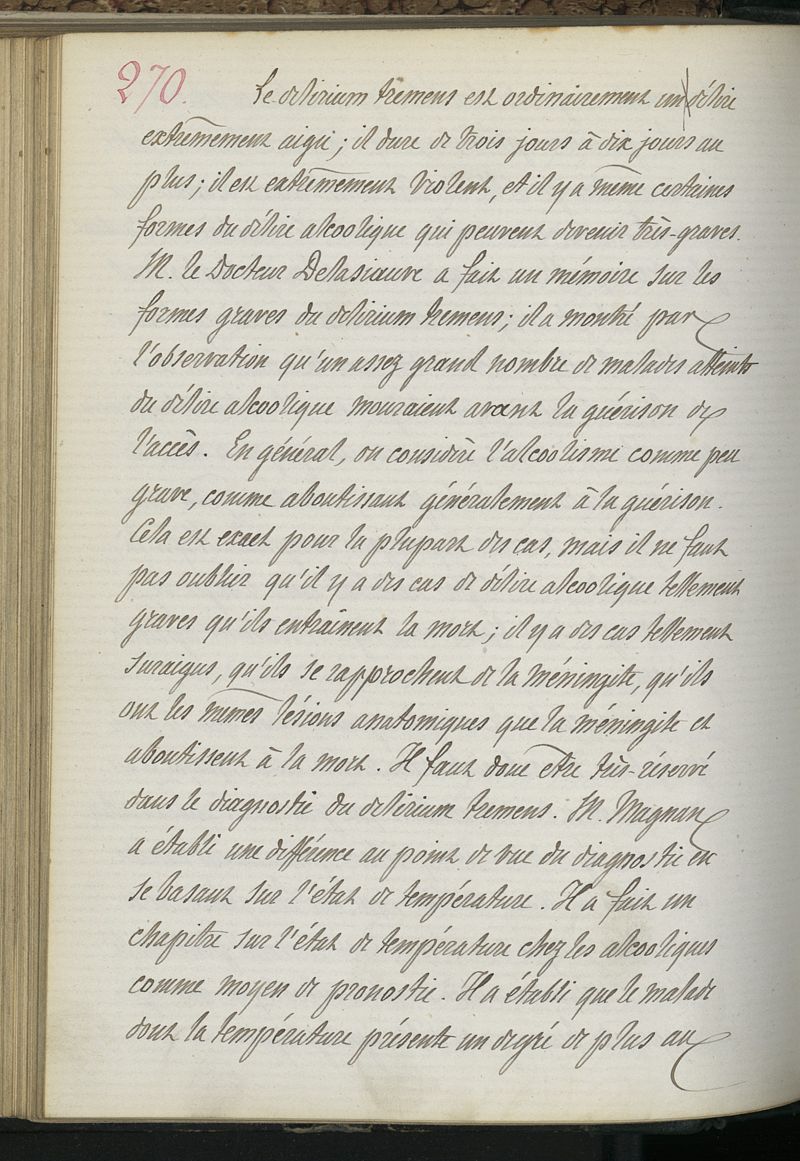 270.
Le delirium tremens est ordinairement un délire
extrêmement aigu ; il dure de trois jours à dix jours au
plus ; il est extrêmement violent, et il y a même certaines
formes du délire alcoolique qui peuvent devenir très-graves.
M. le Docteur Delasiauve a fait un mémoire sur les
formes graves du delirium tremens ; il a montré par
l'observation qu'un assez grand nombre de malades atteints
du délire alcoolique mouraient avant la guérison de
l'accès. En général, on considère l'alcoolisme comme peu
grave, comme aboutissant généralement à la guérison.
Cela est exact pour la plupart des cas, mais il ne faut
pas oublier qu'il y a des cas de délire alcoolique tellement
graves qu'ils entraînent la mort ; il y a des cas tellement
suraigus, qu'ils se rapprochent de la méningite, qu'ils
ont les mêmes lésions anatomiques que la méningite et
aboutissent à la mort. Il faut donc être très-réservé
dans le diagnostic du delirium tremens. M. Magnan
a établi une différence au point de vue du diagnostic en
se basant sur l'état de température. Il a fait un
chapitre sur l'état de température chez les alcooliques
comme moyen de pronostic. Il a établi que le malade
dont la température présente un degré de plus au